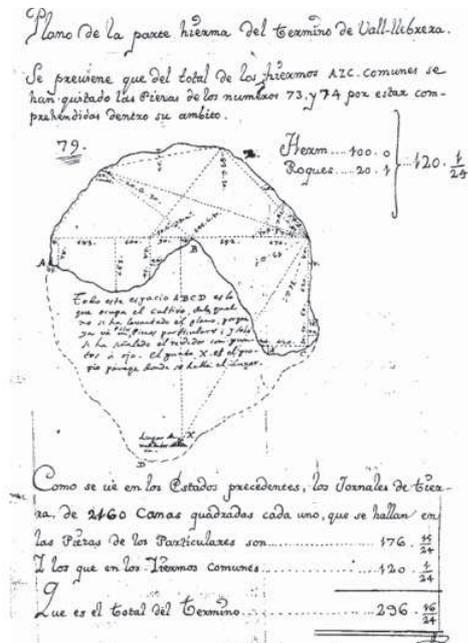 Plano de la parte hierma del termino de Vall-llebrera.
Se previene que del total de los hiermos AZC. comunes se
han quitado las Pieras de los numeros 73. y 74 por estar com-
prehendidas dentro su ambito.
79.
Herm.... 100.0
Roques.... 20.1
120. 1/24
A
B
Todo este espacio ABCD es lo
que ocupa el cultivo, del qual
no se ha levantado el plano, porque
ya vá en Pieras particulares; y solo
se ha señalado el rededor con pun-
tos á ojo. El punto X. es el pro-
pio parage donde se halla el Lugar.
C
X
D
Como se vé en los Estados precedentes, los Jornales de tier-
ra, de 2160 Canas quadradas cada uno, que se hallan en
las Pieras de los Particulares son.......... 176. 15/24
I los que en los Iermos Comunes.......... 120. 1/24
Que es el total del Termino.......... 296. 16/24